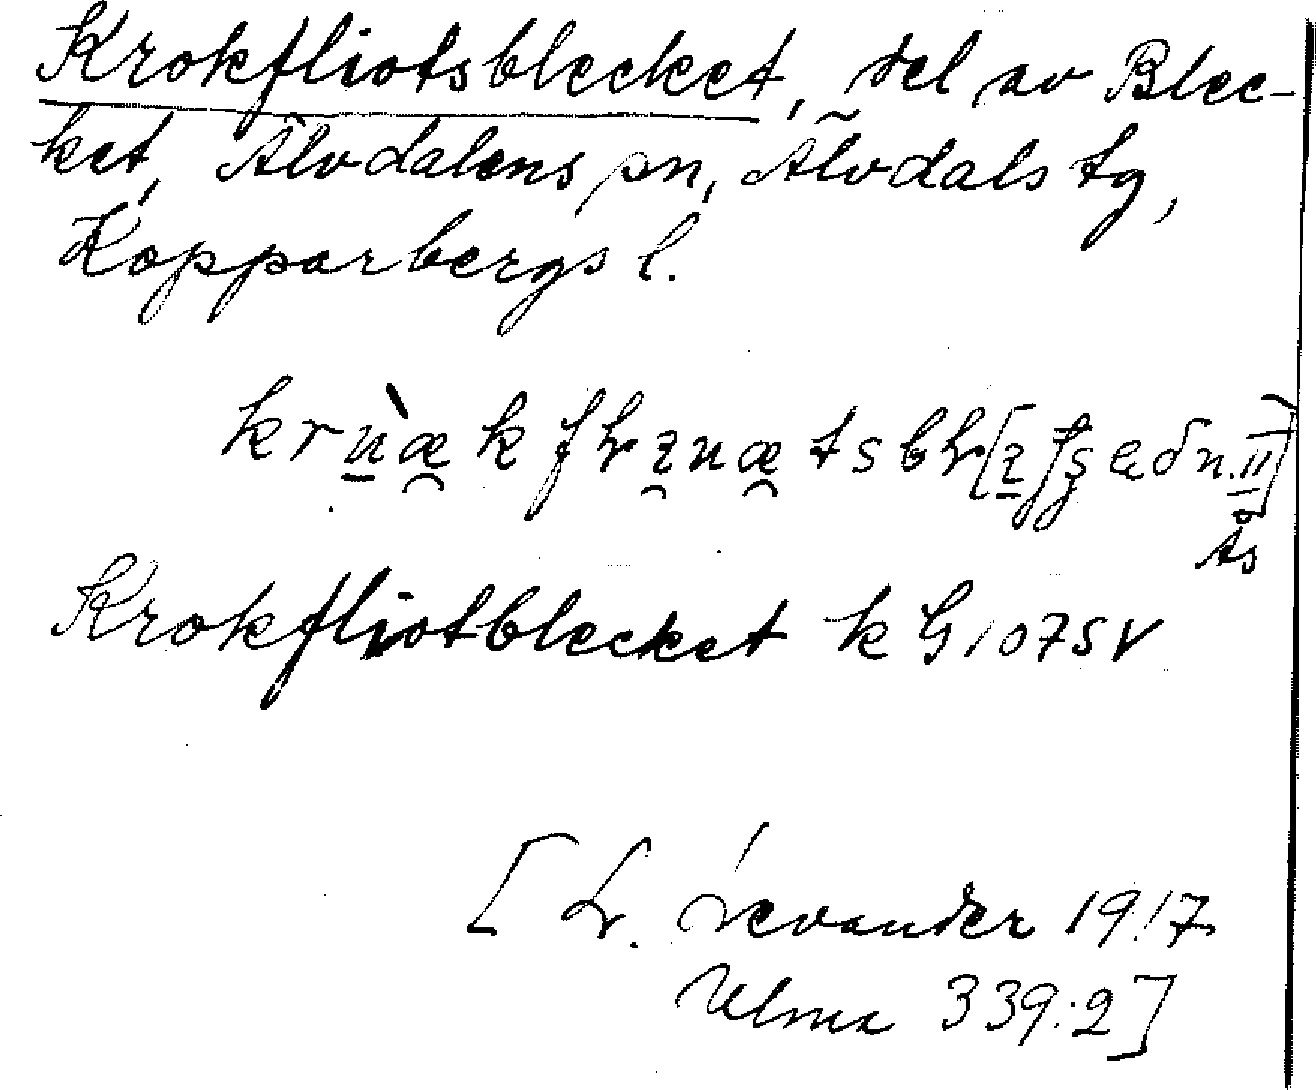 Krokfliotsblecket, del av Blec-
ket, Älvdalens sn, Älvdals tg,
Kopparbergs l.
ts
Krokfliotblecket k G 107 SV
[L. Levander 1917
Ulma 339:2]